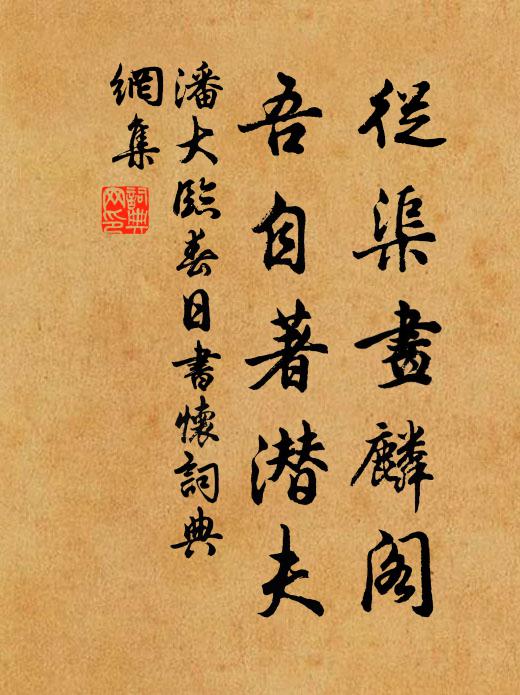 從渠畫麟閣
吾自著潜夫
潘大臨春日書懷詞典
網集
詞典
网印